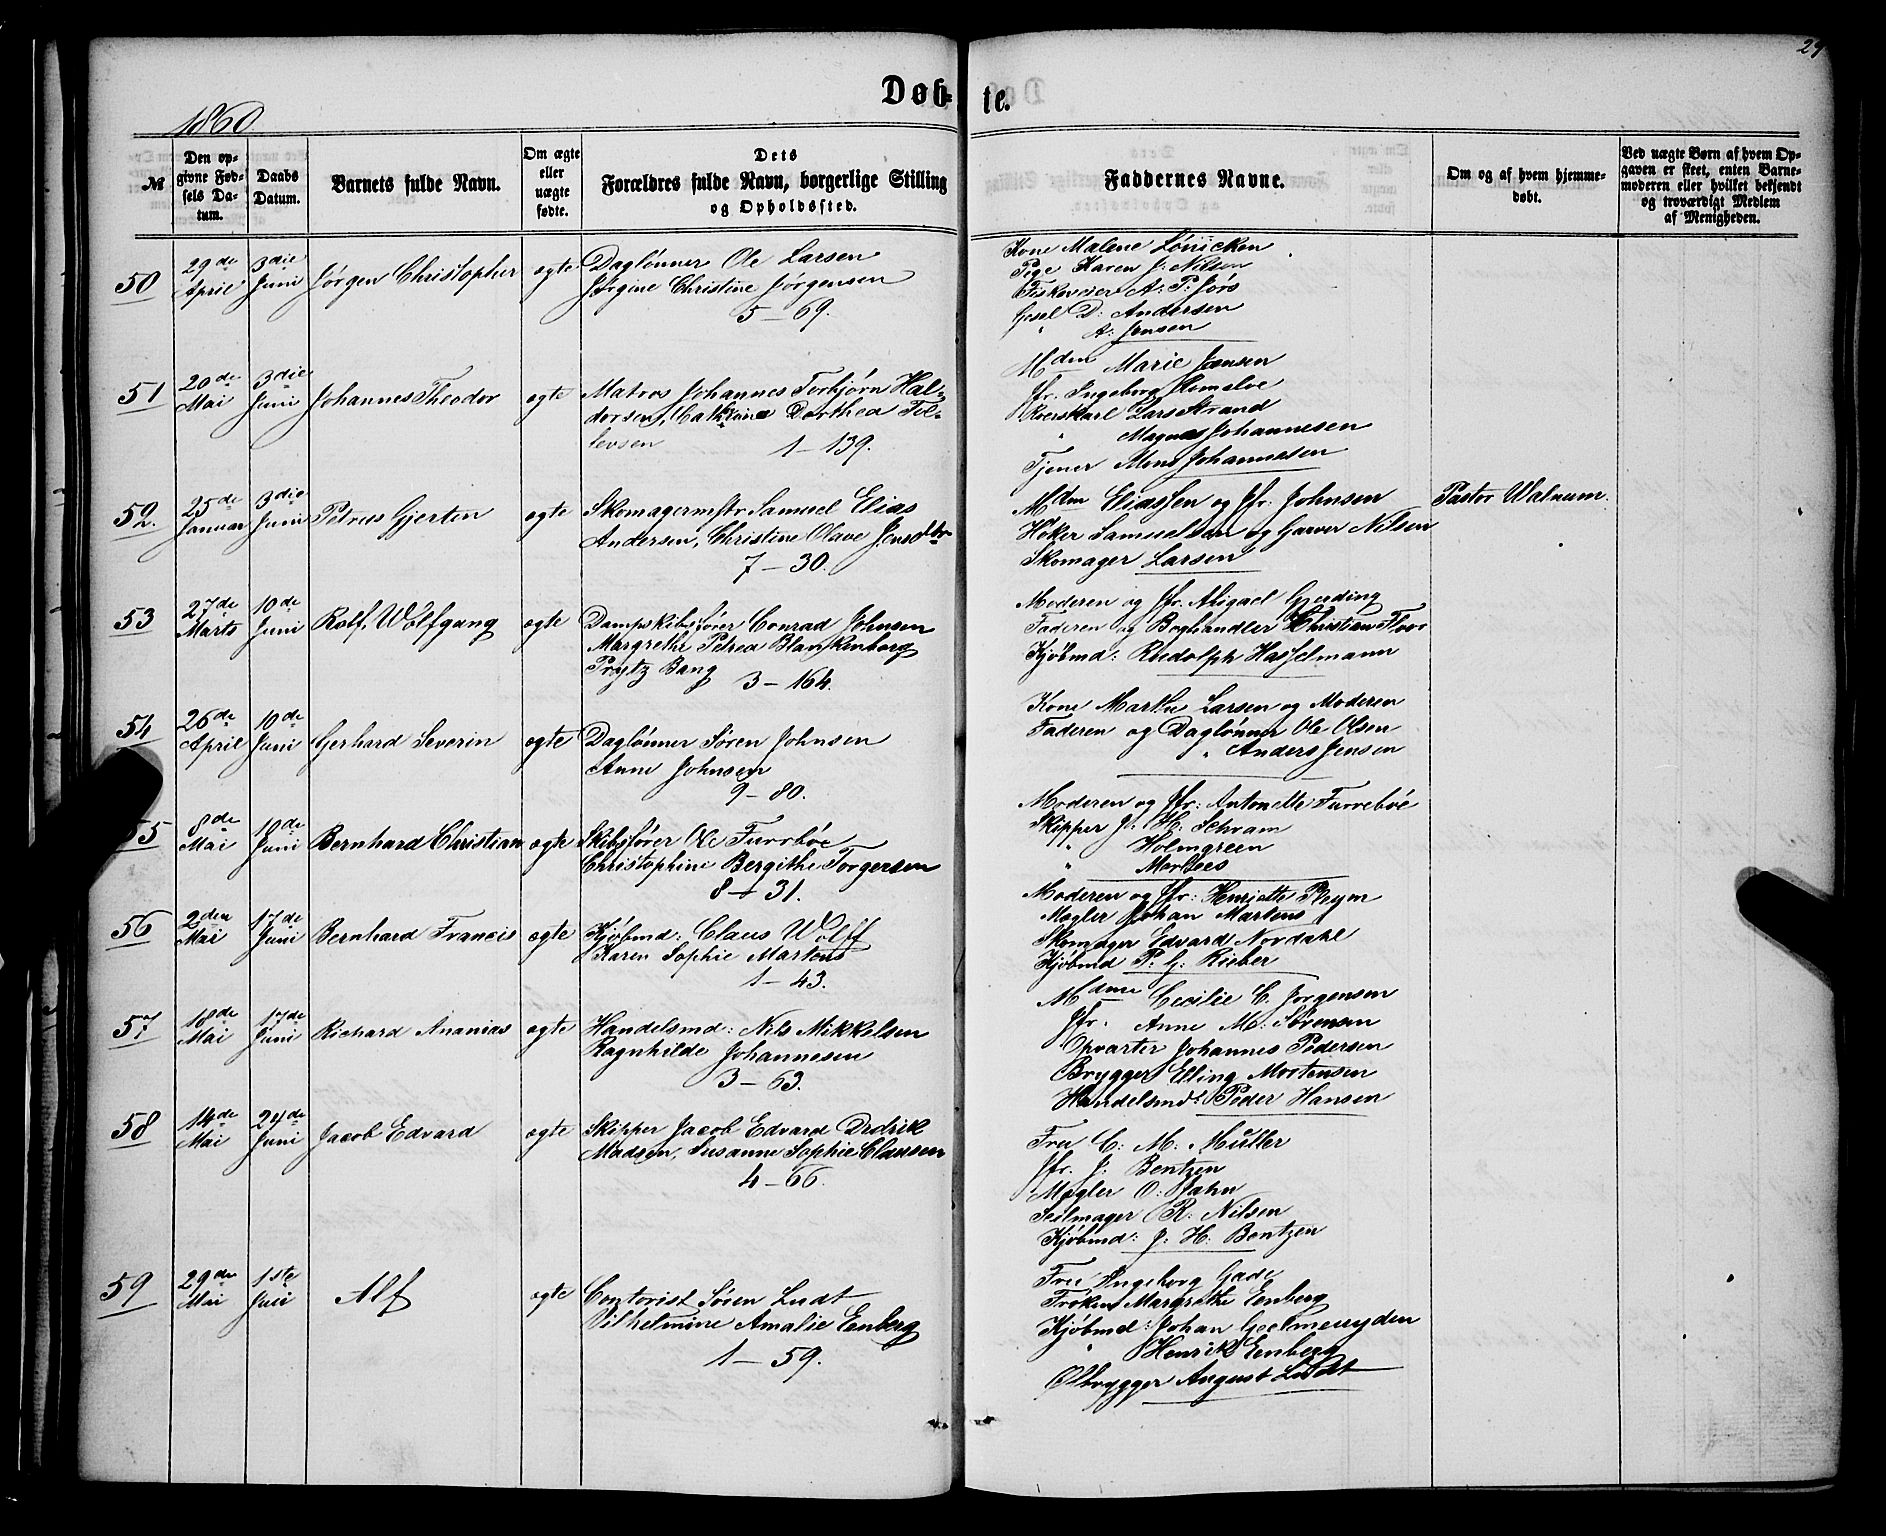 29
Døb- te.
1860.
№
Den opgivne Fødsels Datum.
Daabs Datum.
Barnets fulde Navn.
Om ægte eller uægte fødte.
Dets Forældres fulde Navn, borgerlige Stilling og Opholdssted.
Faddernes Navne.
Om og af hvem hjemmedøbt.
Ved uægte Børn af hvem Opgaven er skeet, enten Barnemoderen eller hvilket bekjendt og troværdigt Medlem af Menigheden.
50 29de April 3die Juni Jørgen Christopher ægte
Daglønner Ole Larsen
Jørgine Christine Jørgensen
5 – 69.
Kone Malene
Pige Karen J: Nilsen
A: P:
Gesel D: Andersen
" A: Jensen
51 20de Mai 3die Juni Johannes Theodor ægte
Matros Johannes Torbjørn Hal-
dorsen, Cathrine Dorthea Tol-
levsen
1 – 139.
Mdm Marie Jensen
Jfr. Ingeborg
Lars Strand
" Magnus Johannesen
Tjener Mons Johannesen
52. 25de Januar 3die Juni Petrus Gjerten ægte
Skomagermstr Samuel Elias
Andersen, Christine Olave Jensdtr
7 – 30.
Mdm Eliassen og Jfr. Johnsen
Høker Samuelsen og Garver Nilsen
Skomager Larsen
Pastor Walnum.
53 27de Marts 10de Juni Rolf Wolfgang ægte
Dampskibsfører Conrad Johnsen
Margrethe Petrea Blankenborg
Prytz Bang 3 – 164.
Moderen og Jfr. Abigael Gjerding
Faderen og Boghandler Christian Floor
Kjøbmd: Rudolph Hasselmann
54 26de April 10de Juni Gerhard Severin ægte
Daglønner Søren Johnsen
Anne Johnsen
9 – 80.
Kone Marthe Larsen og Moderen
Faderen og Daglønner Ole Olsen
" Anders Jensen
55 8de Mai 10de Juni Bernhard Christian ægte
Skibsfører Ole Furebøe
Christophine Bergithe Torgersen
8 – 31.
Moderen og Jfr: Antonette Furrebøe
Skipper J. H: Schram
" Holmgreen
"
56 2den Mai 17de Juni Bernhard Francis ægte
Kjøbmd: Claus Wolff
Karen Sophie Martens
1 – 43.
Moderen og Jfr: Henriette
Mægler Johan Martens
Skomager Edvard Nordahl
Kjøbmd P: G: Rieber
57 18de Mai 17de Juni Richard Ananias ægte
Handelsmd: Nils Mikkelsen
Ragnhilde Johannesen
3 – 63.
Mdme Cecilie C. Jørgensen
Jfr. Anne M: Sørensen
Opvarter Johannes Pedersen
Brygger Elling Mortensen
Handelsmd: Peder Hansen
58 14de Mai 24de Juni Jacob Edvard ægte
Skipper Jacob Edvard Didrik
Madsen, Susanne Sophie Clausen
4 – 66.
Frue C: M: Müller
Jfr. J: Bentzen
Mægler O: Jahn
Seilmager R: Nilsen
Kjøbmd: J: H: Bentzen
59 29de Mai 1ste Juli Alf ægte
Contorist Søren Ludt
Vilhelmine Amalie Eenberg
1 – 59.
Frue Ingeborg Gade
Frøken Margrethe Eenberg
Kjøbmd: Johan Geelmeuyden
" Henrik Eenberg
Ølbrygger August Ludt